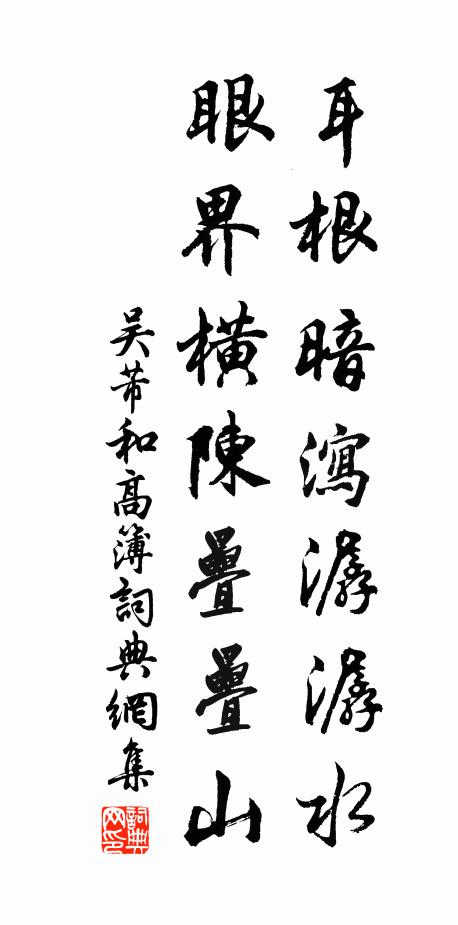 耳根暗瀉潺潺水
眼界橫陳疊疊山
吴芾和高簿詞典網集
詞典網印